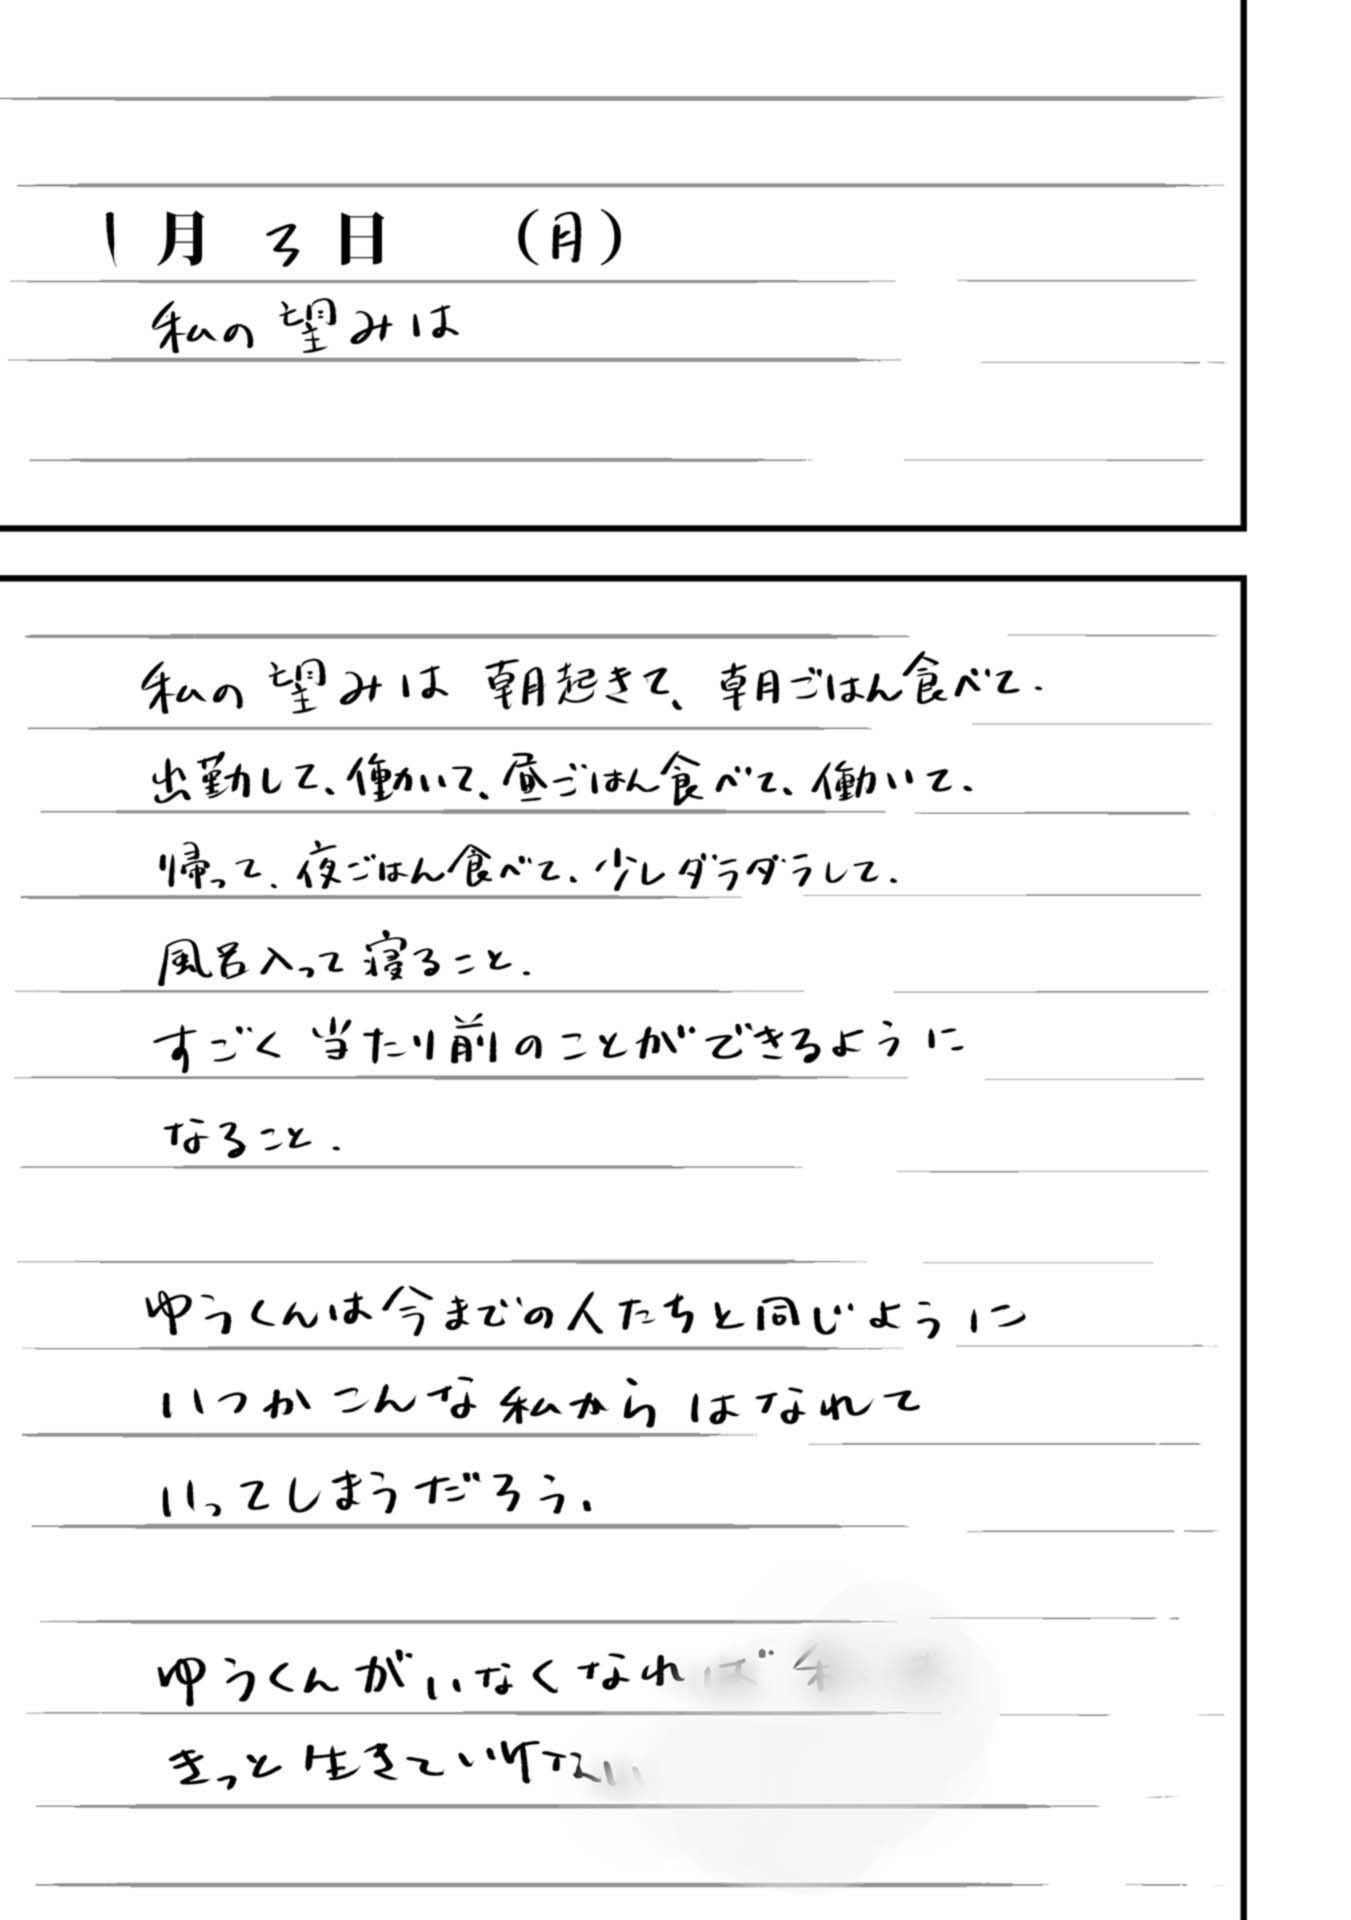 1月3日 (月)
私の望みは
私の望みは 朝起きて、朝ごはん食べて.
出勤して、働いて、昼ごはん食べて、働いて.
帰って、夜ごはん食べて、少しダラダラして.
風呂入って寝ること.
すごく当たり前のことができるように
なること.
ゆうくんは今までの人たちと同じように
いつかこんな私からはなれて
いってしまうだろう.
ゆうくんがいなくなれば私は
きっと生きていけない